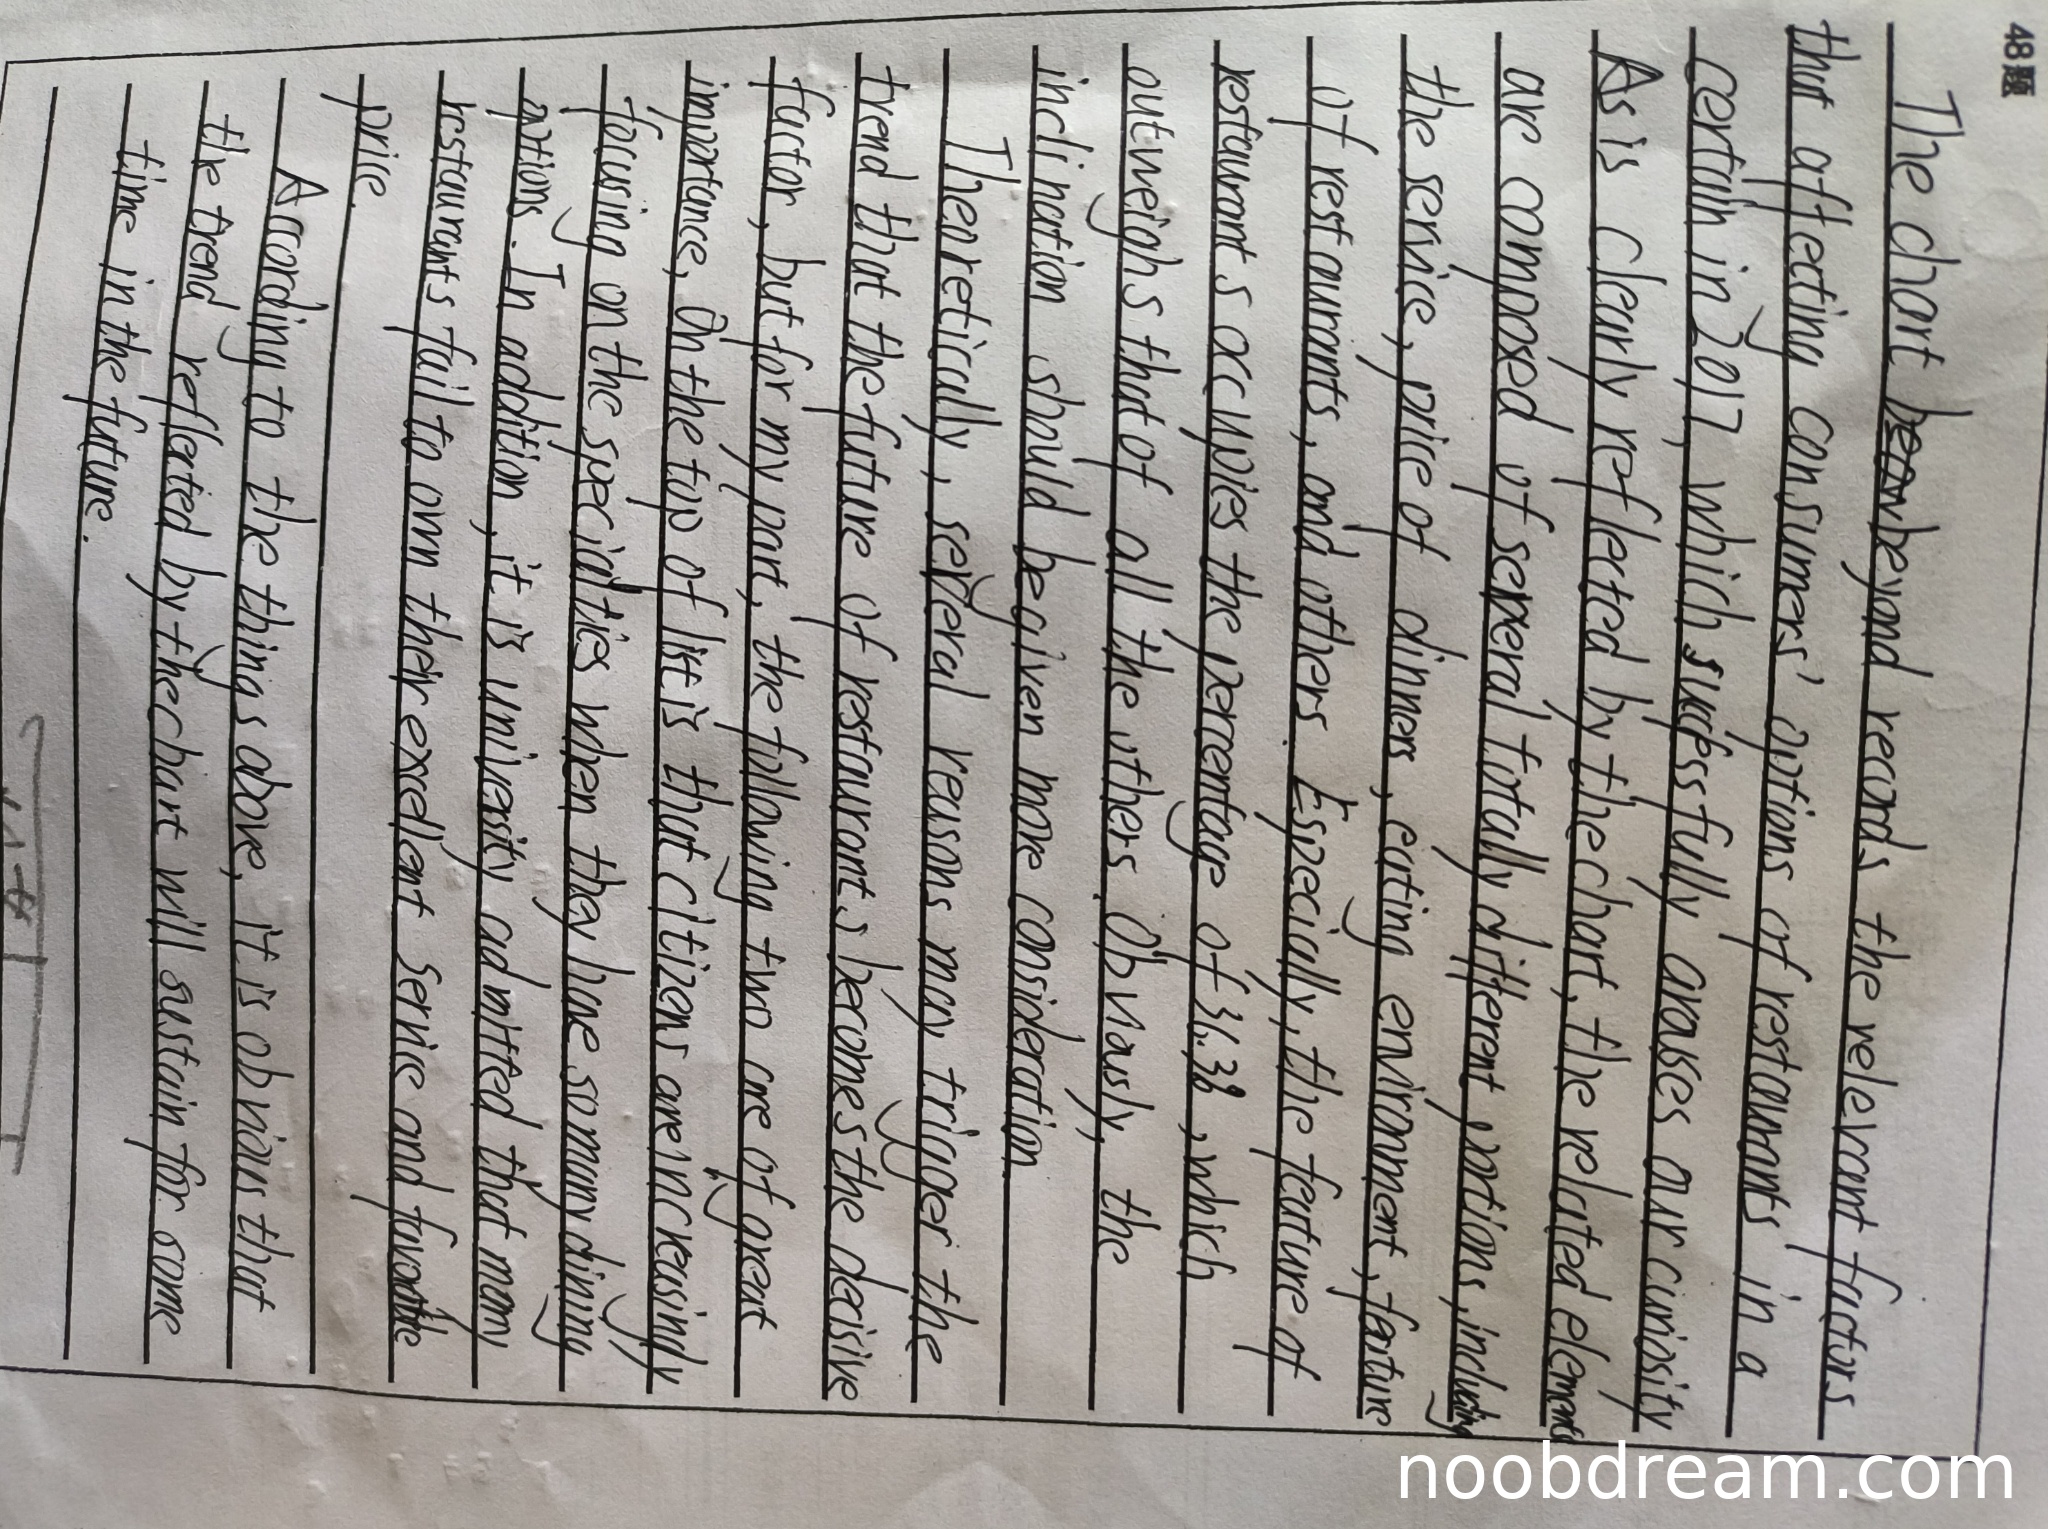 48题
The chart beyond records the relevant factors
that affecting consumers' options of restaurants in a
certain in 2017, which successfully arouses our curiosity
As is clearly reflected by the chart, the related elements
are composed of several totally different options, including
the service, price of dinners, eating environment, feature
of restaurants, and others. Especially, the feature of
restaurants occupies the percentage of 36.3%, which
outweighs that of all the others. Obviously, the
inclination should be given more consideration
Theoretically, several reasons may trigger the
trend that the future of restaurants becomes the decisive
factor, but for my part, the following two are of great
importance, On the top of list is that citizens are increasingly
focusing on the specialties when they have so many dining
options. In addition, it is university admitted that many
restaurants fail to own their excellent service and favorable
price.
According to the things above, it is obvious that
the trend reflected by the chart will sustain for some
time in the future.
noobdream.com